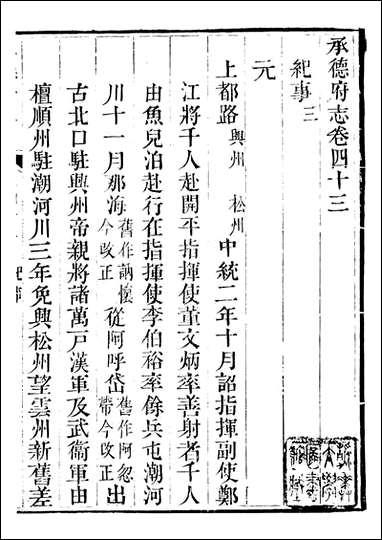 承德府志卷四十三
紀事三
元
上都路興州松州中統二年十月詔指揮副使鄭
江將千人赴開平指揮使董文炳率善射者千人
由魚兒泊赴行在指揮使李伯裕率餘兵屯潮河
川十一月那海舊作訥懷今改正從阿呼岱舊作阿忽帶今改正出
古北口駐興州帝親將諸萬戶漢軍及武衞軍由
檀順州駐潮河川三年免興松州望雲州新舊差